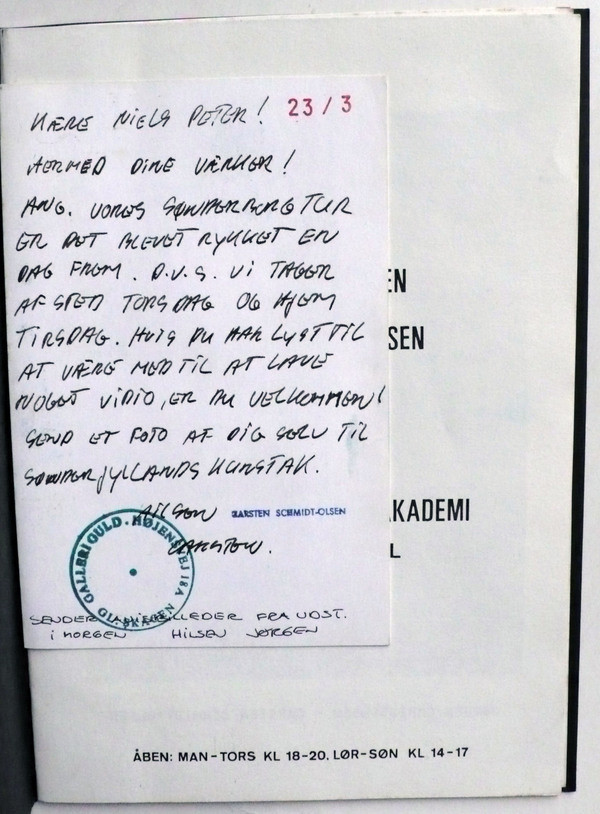 KÆRE NIELS PETER! 23/3
HERMED DINE VÆRKER!
ANG. VORES SØNDERBORGTUR
ER DET BLEVET RYKKET EN
DAG FREM. D.V.S. VI TAGER
AF STED TORSDAG OG HJEM
TIRSDAG. HVIS DU HAR LYST TIL
AT VÆRE MED TIL AT LAVE
NOGET VIDIO, ER DU VELKOMMEN!
SEND ET FOTO AF DIG SELV TIL
SØNDERJYLLANDS KUNSTAK.
HILSEN KARSTEN SCHMIDT-OLSEN
KARSTEN.
GALLERI GULD. HØJENSVEJ 18A
GL. SKAGEN
SENDER BILLEDER FRA UDST.
I MORGEN HILSEN JØRGEN
EN
SEN
KADEMI
L
ÅBEN: MAN-TORS KL 18-20. LØR-SØN KL 14-17